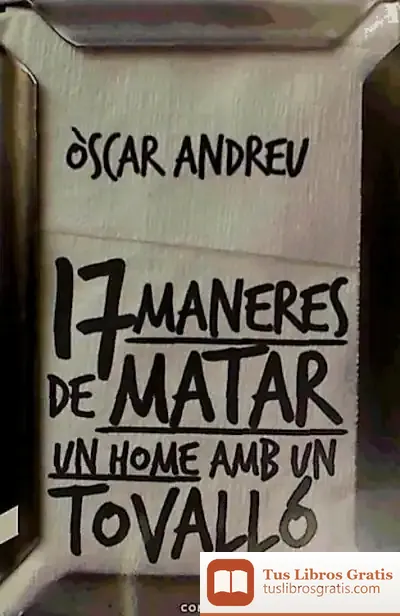 ÒSCAR ANDREU
17 MANERES
DE MATAR
UN HOME AMB UN
TOVALLÓ
Tus Libros Gratis
tuslibrosgratis.com